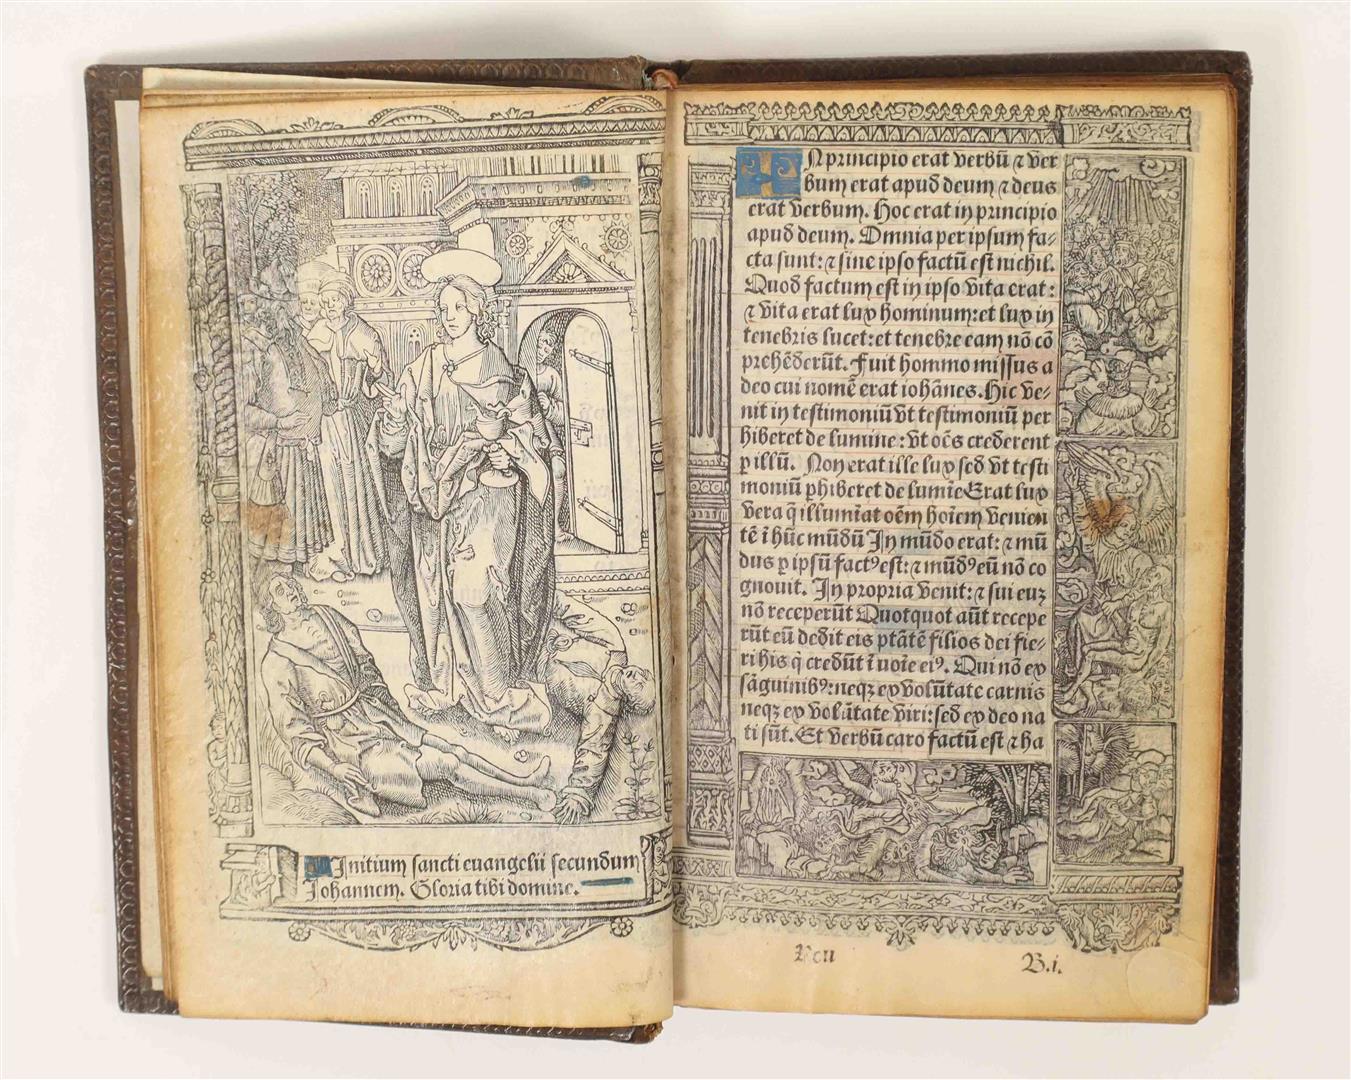 Initium sancti euangelii secundum
Iohannem. Gloria tibi domine.
IN principio erat verbū ⁊ ver
bum erat apud deum ⁊ deus
erat verbum. Hoc erat in principio
apud deum. Omnia per ipsum fa-
cta sunt: ⁊ sine ipso factū est nichil.
Quod factum est in ipso vita erat:
⁊ vita erat lux hominum: et lux in
tenebris lucet: et tenebre eam nō cō
prehēderūt. Fuit hommo missus a
deo cui nomē erat iohānes. Hic ve-
nit in testimoniū vt testimoniū per
hiberet de lumine: vt oēs crederent
ꝑ illū. Non erat ille lux sed vt testi
moniū ꝑhiberet de lumīe Erat lux
vera q̄ illumīat oēm hoīem venien
tē ī hūc mūdū In mūdo erat: ⁊ mū
dus ꝑ ipsū fact⁹ est: ⁊ mūd⁹ eū nō co
gnouit. In propria venit: ⁊ sui euꝫ
nō receperūt Quotquot aūt recepe
rūt eū dedit eis ptātē filios dei fie-
ri his q̄ credūt ī noīe ei⁹. Qui nō ex
sāguinib⁹: neqꝫ ex volūtate carnis
neqꝫ ex volūtate viri: sed ex deo na
ti sūt. Et verbū caro factū est ⁊ ha
B.i.